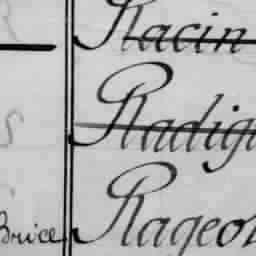 Racin
Radig
Brice Rageo